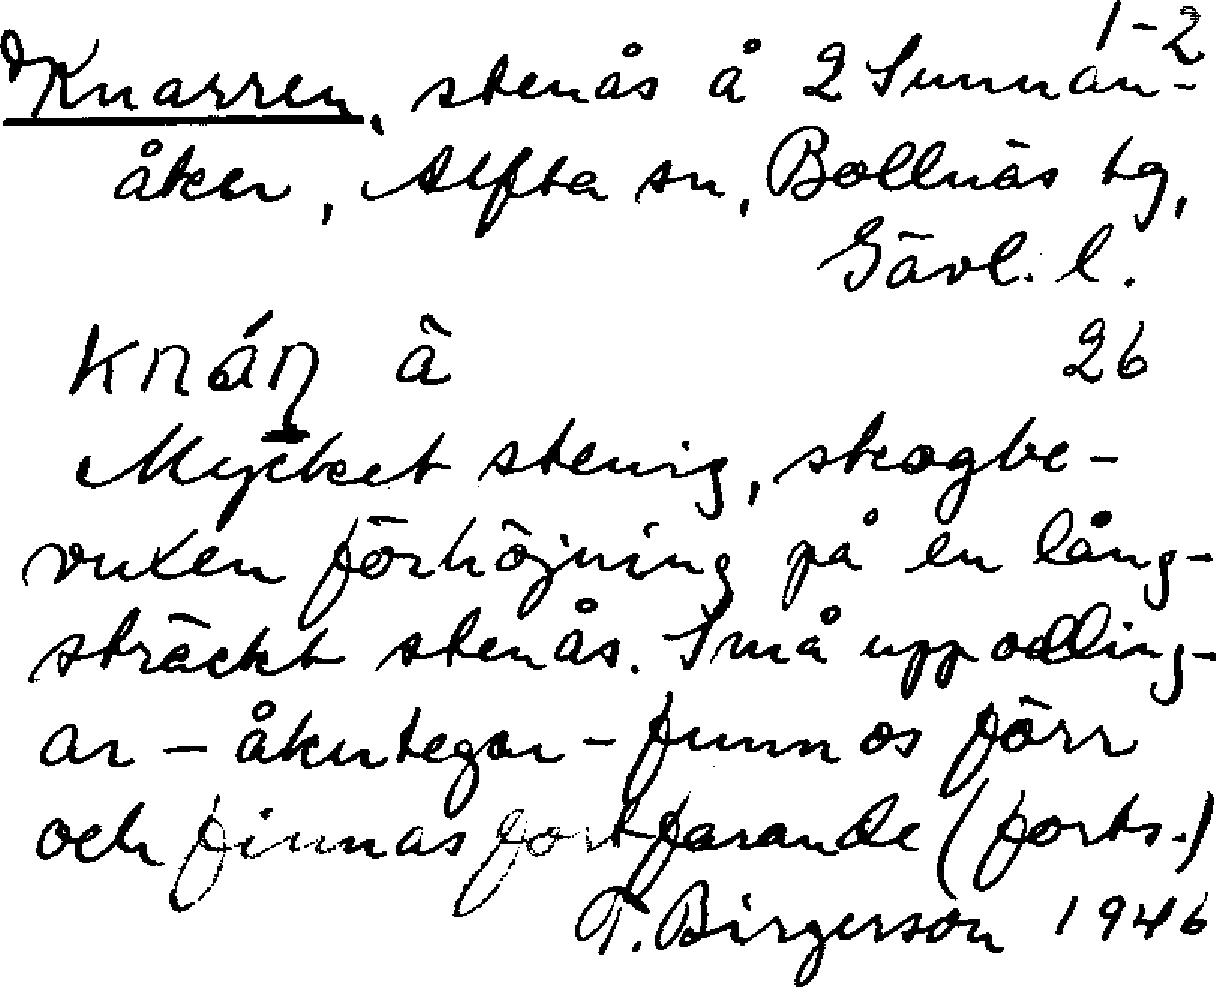 1-2
Knarren, stenås å 2 Sunnan-
åker, Alfta sn, Bollnäs tg,
Gävl. l.
knáṉ à 26
Mycket stenig, skogbe-
vuxen förhöjning på en lång-
sträckt stenås. Små uppodling-
ar - åkertegar - funnos förr
och finnas fortfarande (forts.)
T. Birgerson 1946